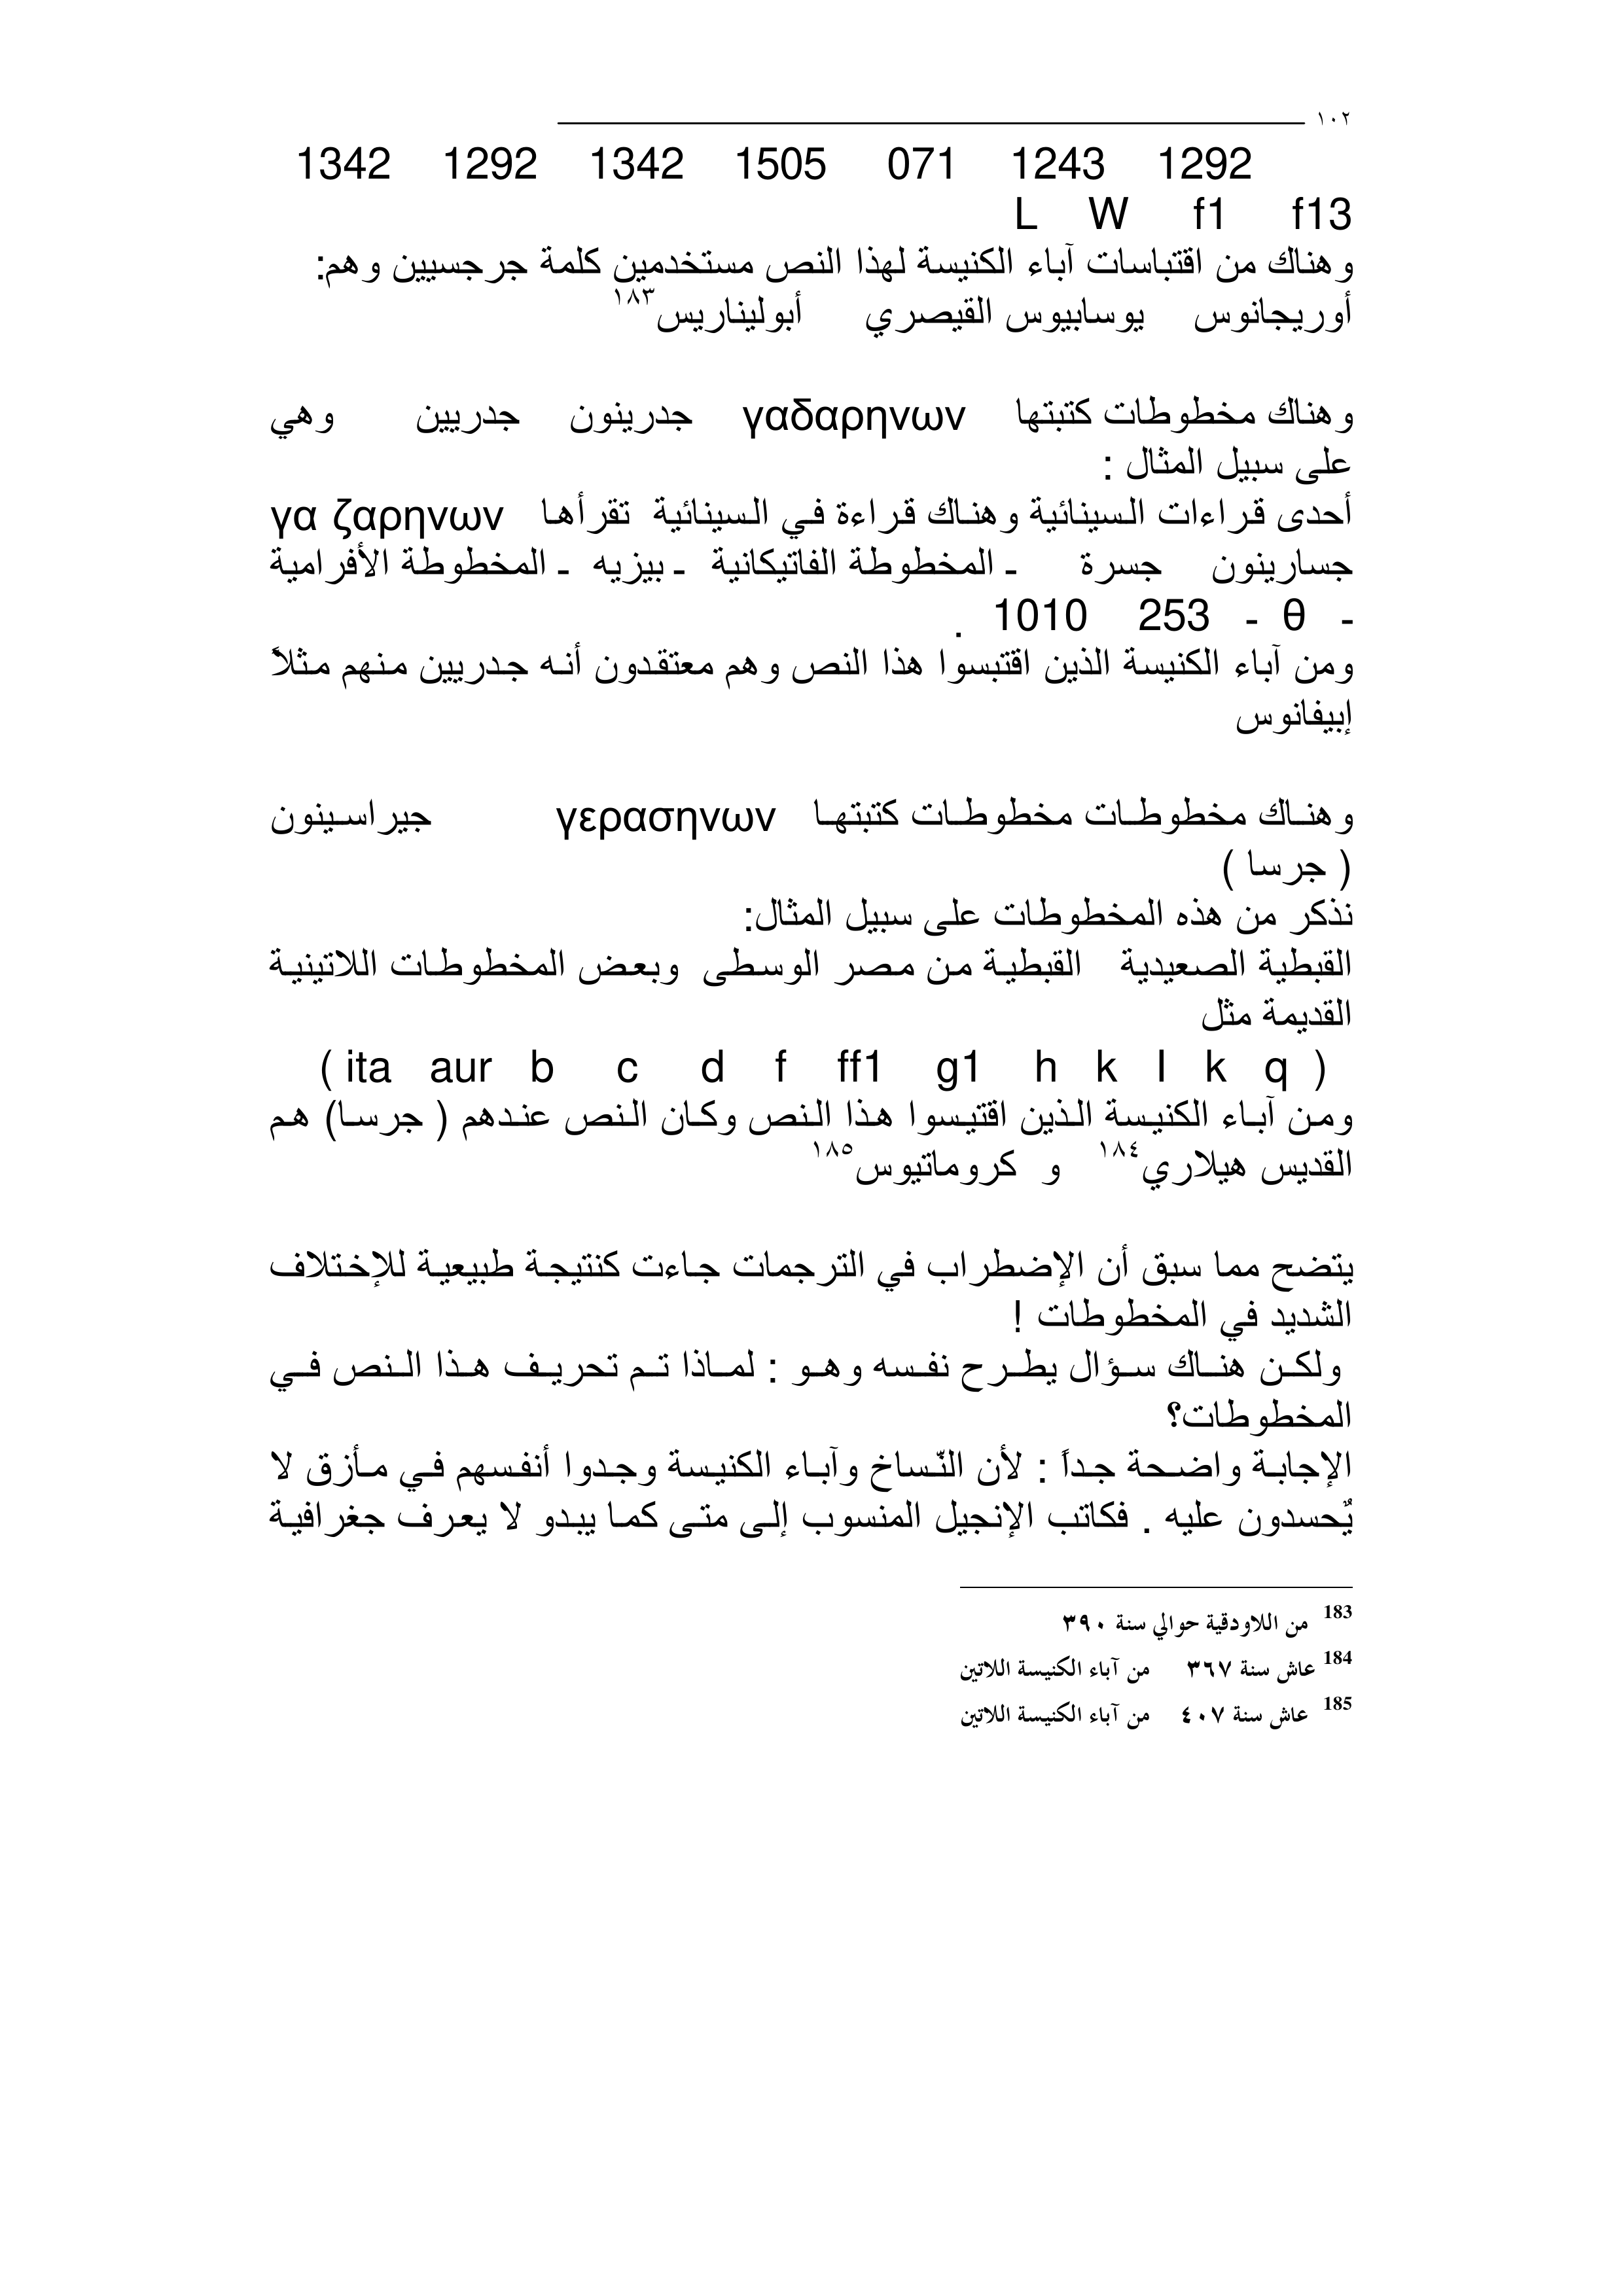 ١٠٢
1342 1292 1342 1505 071 1243 1292
L W f1 f13
وهناك من اقتباسات آباء الكنيسة لهذا النص مستخدمين كلمة جرجسيين وهم:
أوريجانوس يوسابيوس القيصري أبوليناريس١٨٣
وهناك مخطوطات كتبتها γαδαρηνων جدرينون جدريين وهي
على سبيل المثال :
أحدى قراءات السينائية وهناك قراءة في السينائية تقرأها γα ζαρηνων
جسارينون جسرة ـ المخطوطة الفاتيكانية ـ بيزيه ـ المخطوطة الأفرامية
- θ - 253 1010 .
ومن آباء الكنيسة الذين اقتبسوا هذا النص وهم معتقدون أنه جدريين منهم مثلاً
إبيفانوس
وهناك مخطوطات مخطوطات كتبتها γερασηνων جيراسينون
( جرسا )
نذكر من هذه المخطوطات على سبيل المثال:
القبطية الصعيدية القبطية من مصر الوسطى وبعض المخطوطات اللاتينية
القديمة مثل
( ita aur b c d f ff1 g1 h k l k q )
ومن آباء الكنيسة الذين اقتيسوا هذا النص وكان النص عندهم ( جرسا) هم
القديس هيلاري١٨٤ و كروماتيوس١٨٥
يتضح مما سبق أن الإضطراب في الترجمات جاءت كنتيجة طبيعية للإختلاف
الشديد في المخطوطات !
ولكن هناك سؤال يطرح نفسه وهو : لماذا تم تحريف هذا النص في
المخطوطات؟
الإجابة واضحة جداً : لأن النّساخ وآباء الكنيسة وجدوا أنفسهم في مأزق لا
يٌحسدون عليه . فكاتب الإنجيل المنسوب إلى متى كما يبدو لا يعرف جغرافية
183 من اللاودقية حوالي سنة ٣٩٠
184 عاش سنة ٣٦٧ من آباء الكنيسة اللاتين
185 عاش سنة ٤٠٧ من آباء الكنيسة اللاتين